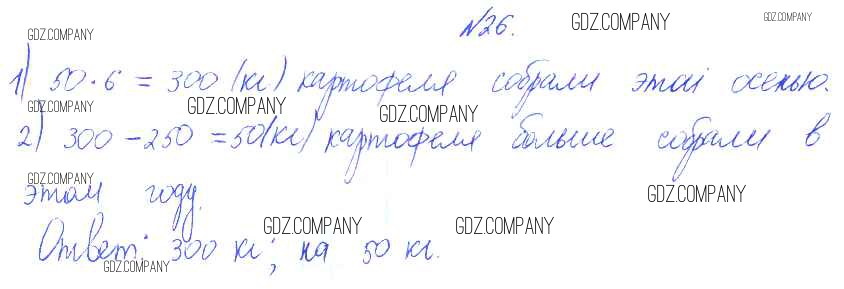 №26. GDZ.COMPANY GDZ.COMPANY
GDZ.COMPANY
1) 50·6 = 300 (кг) картофеля собрали этой осенью.
GDZ.COMPANY GDZ.COMPANY GDZ.COMPANY
2) 300 - 250 = 50 (кг) картофеля больше собрали в
GDZ.COMPANY
этом году. GDZ.COMPANY
GDZ.COMPANY GDZ.COMPANY
Ответ: 300 кг; на 50 кг.
GDZ.COMPANY